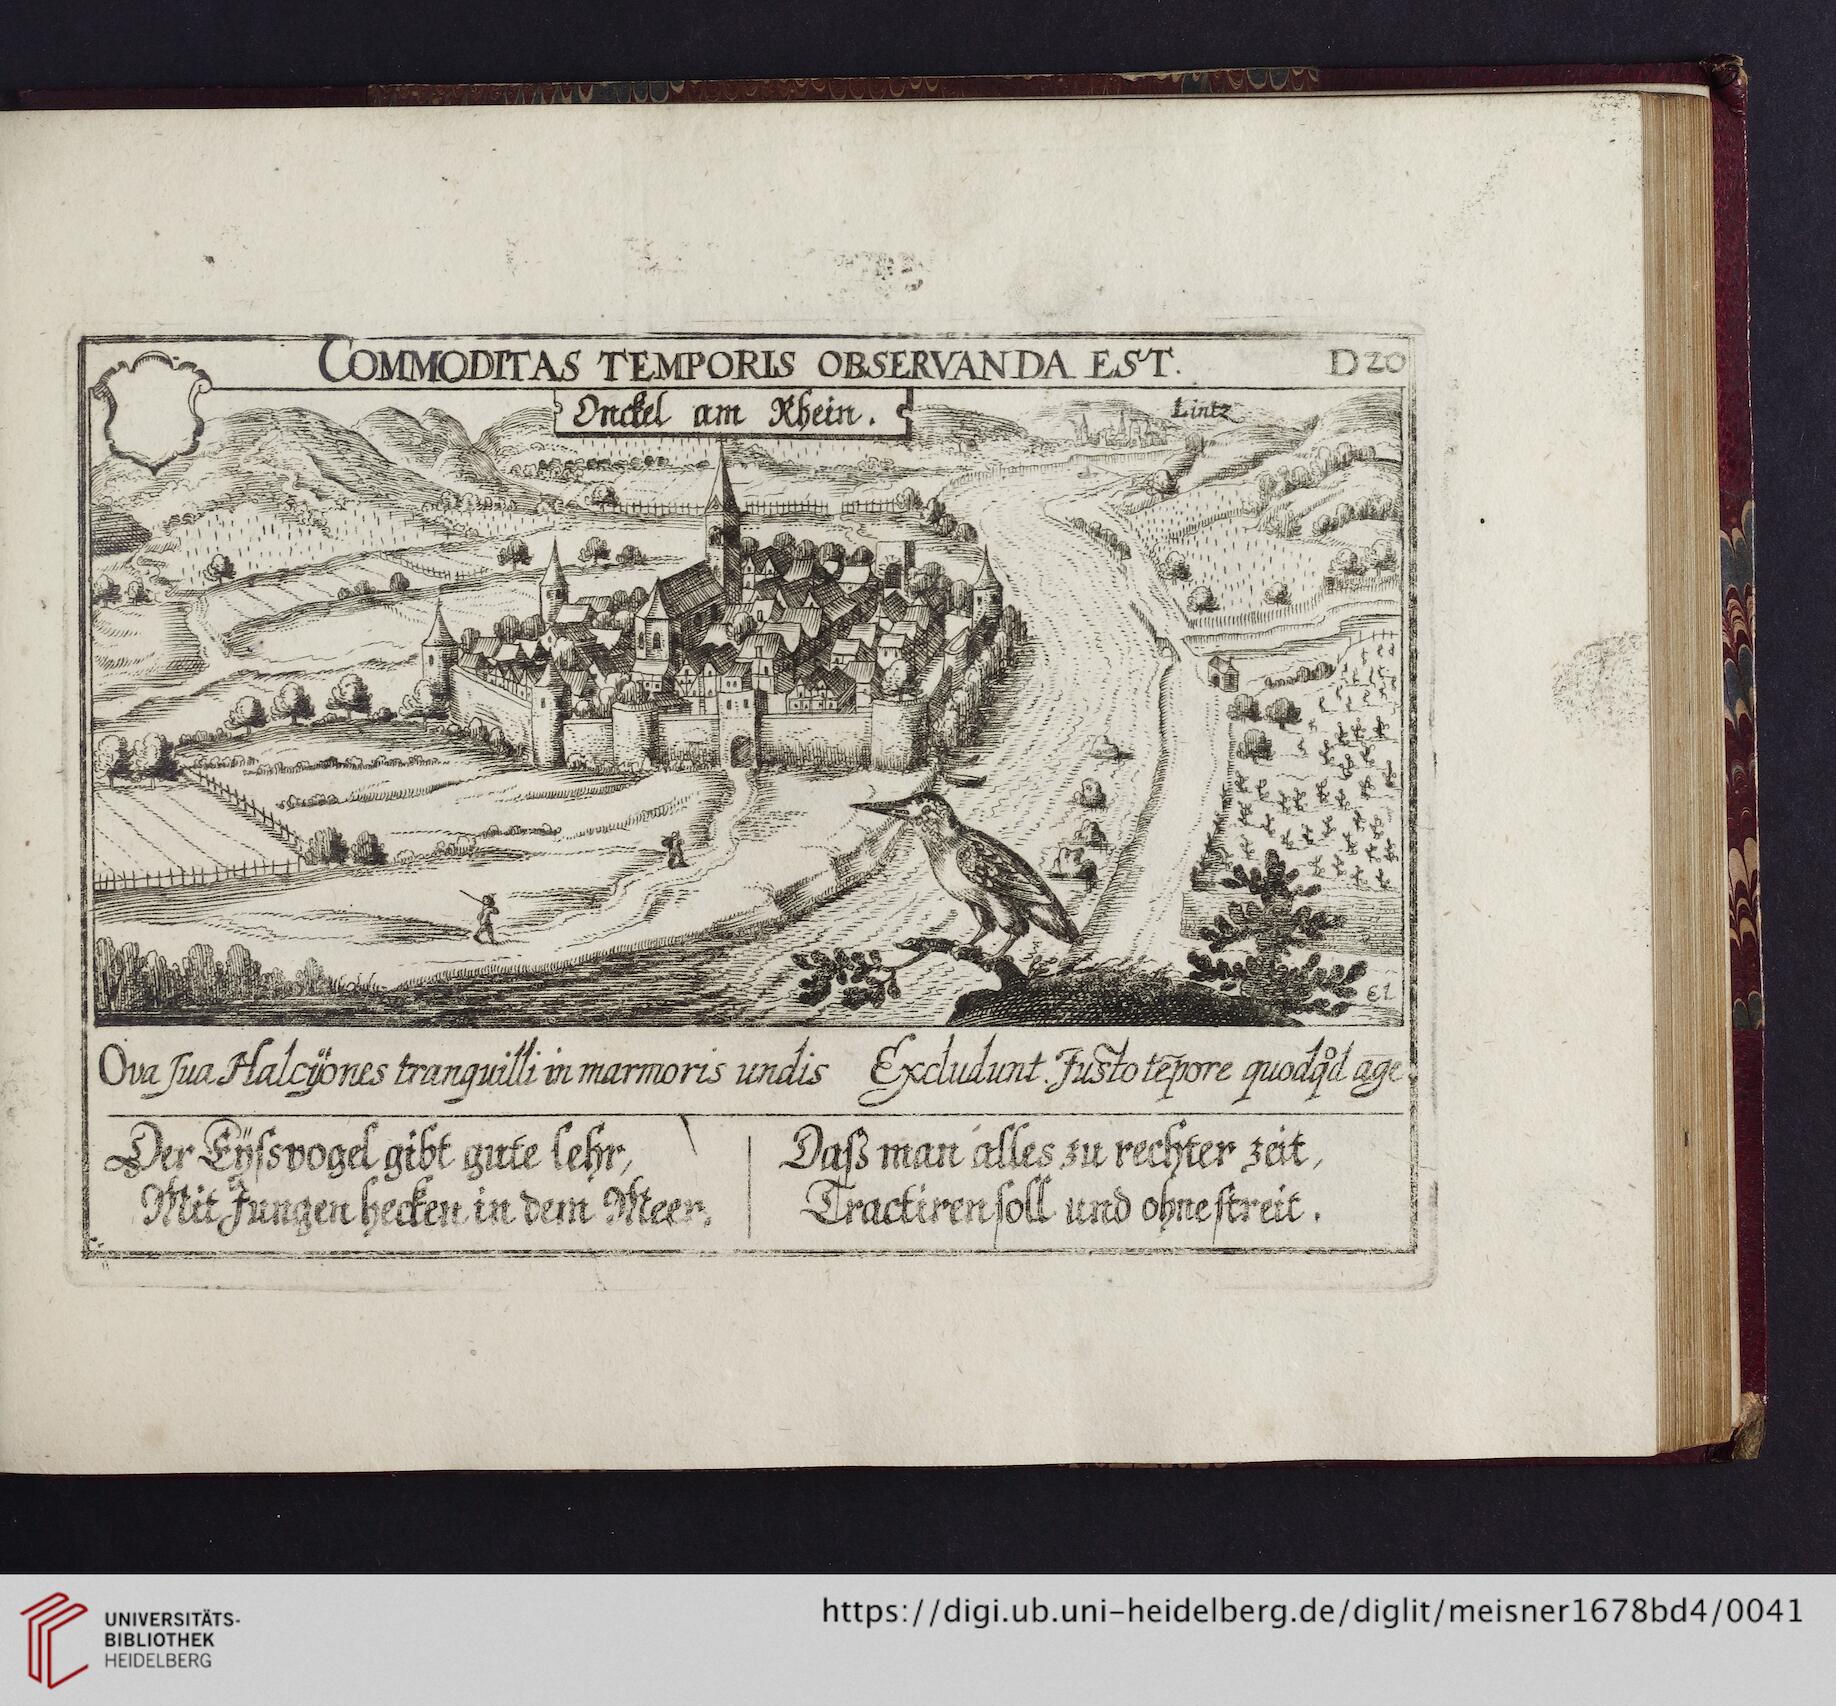 COMMODITAS TEMPORIS OBSERVANDA EST.
D 20
Onckel am Rhein.
Lintz
61
Ova sua Halcÿones tranquilli in marmoris undis Excludunt. Justo tēpore quodq̊d age.
Der Eÿssvogel gibt gute lehr,
Mit Jungen hecken in dem Meer,
Daß man alles zu rechter zeit,
Tractiren soll und ohne streit.
UNIVERSITÄTS-
BIBLIOTHEK
HEIDELBERG
https://digi.ub.uni-heidelberg.de/diglit/meisner1678bd4/0041